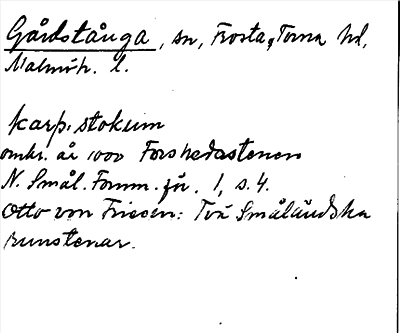 Gårdstånga, sn, Frosta, Torna hd,
Malmöh. l.
karþi stokum
omkr. år 1000 Forshedastenen
N. Smål. Fornm. för. 1, s. 4.
Otto von Friesen: Två Småländska
runstenar.